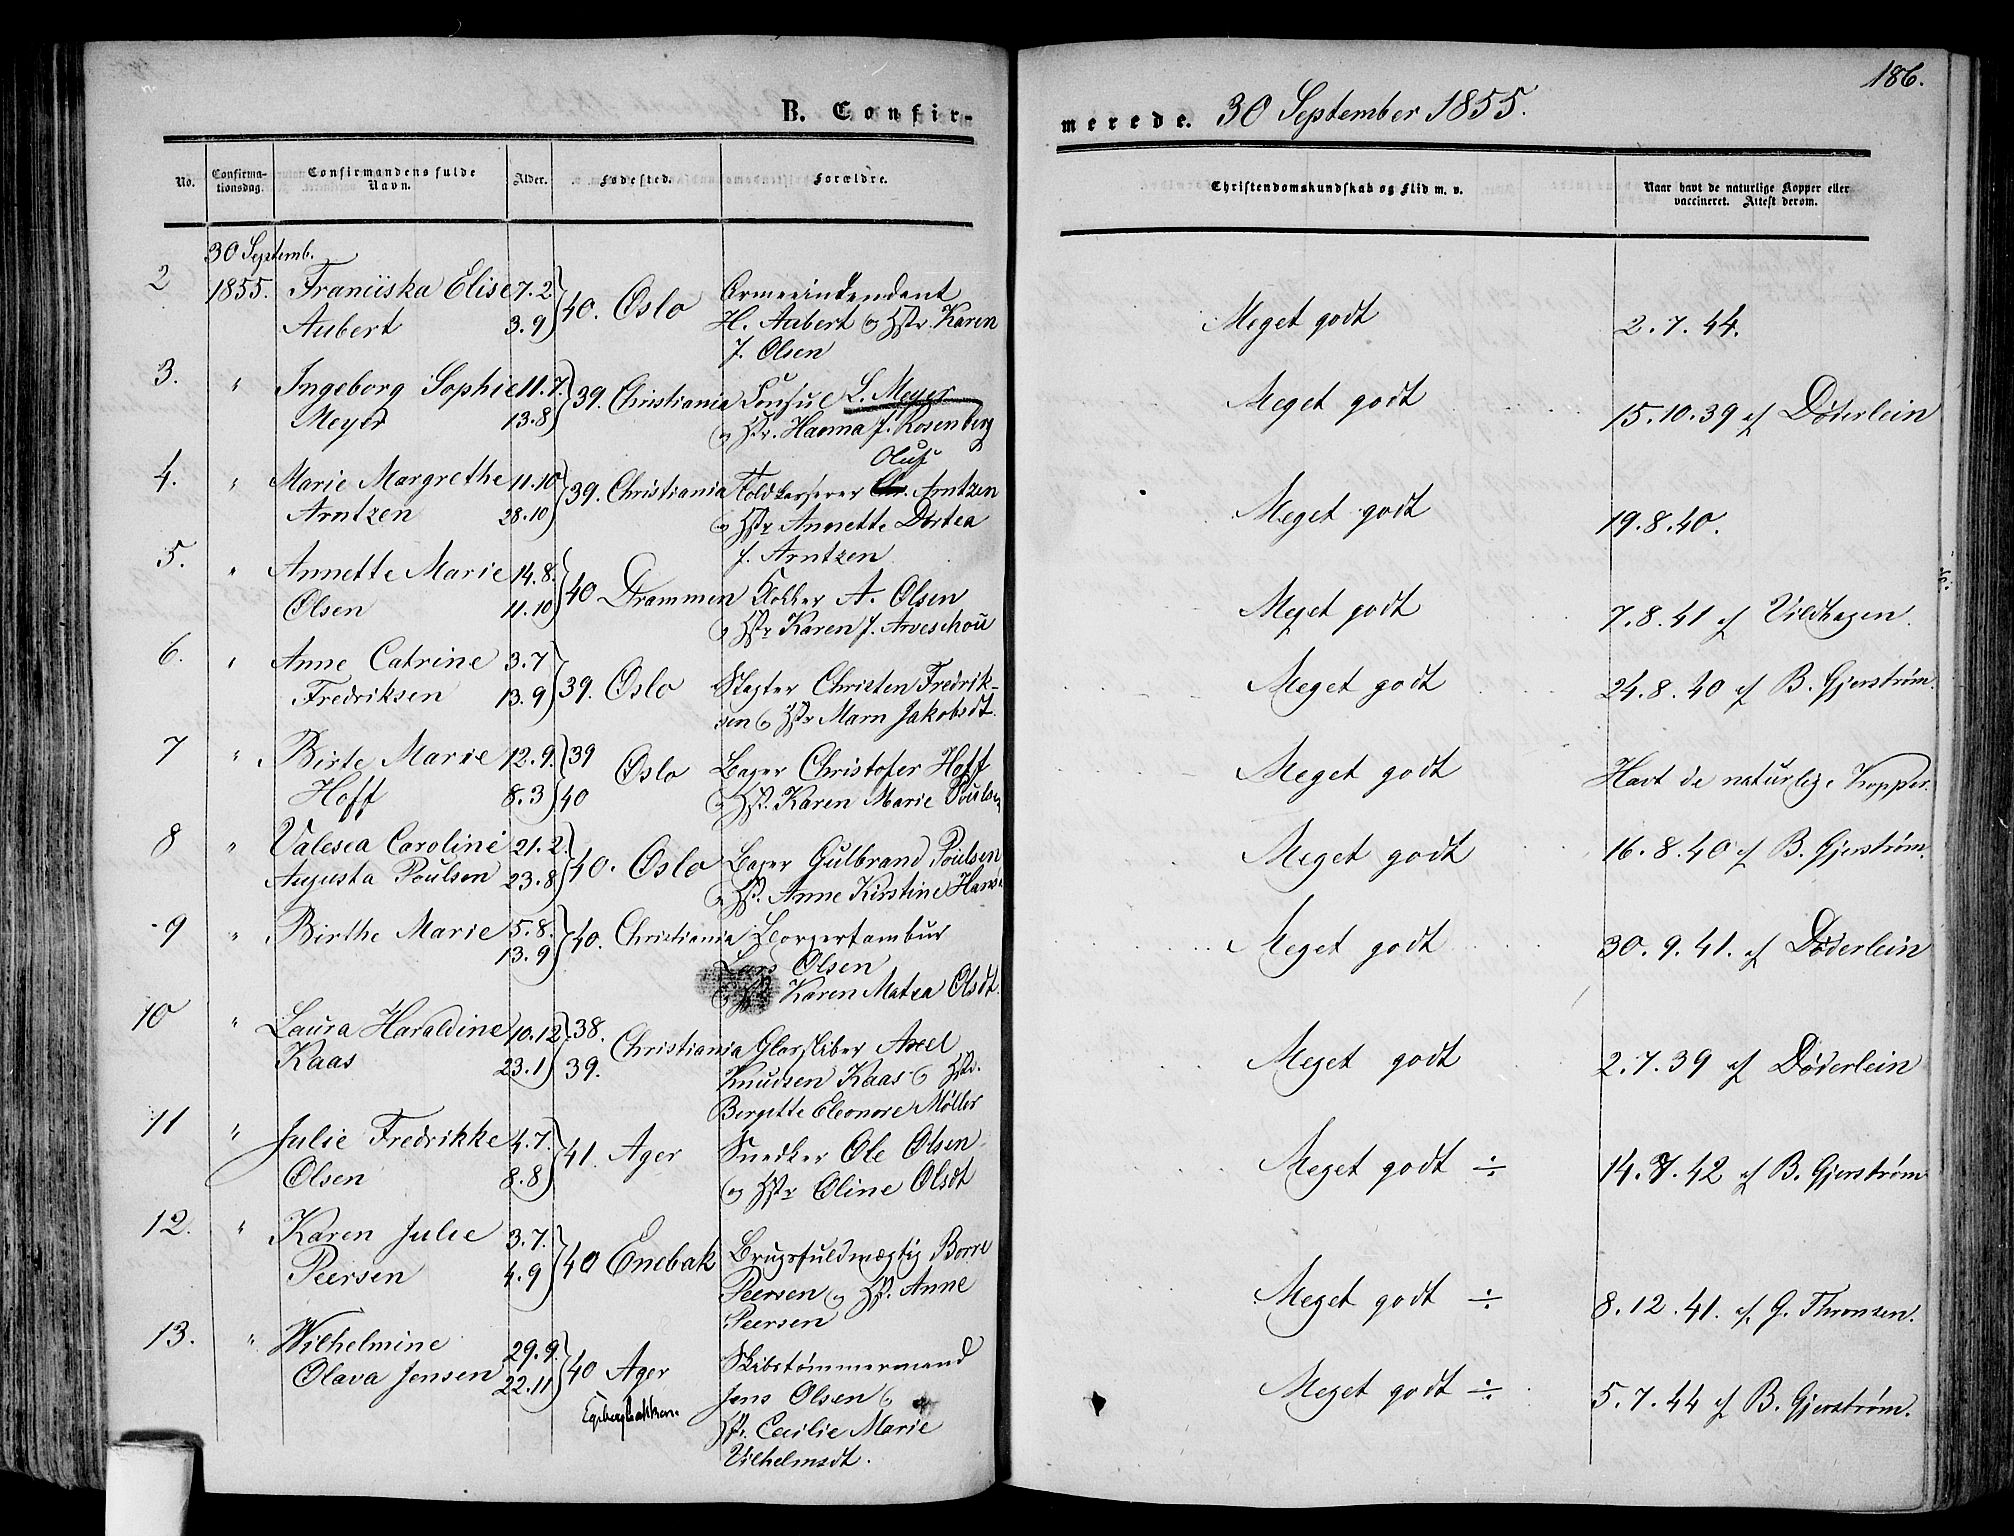 186.
B. Confir-
merede. 30 September 1855.
No.
Confirma-
tionsdag.
Confirmandens fulde
Navn.
Alder.
Fødested.
Forældre.
Christendomskundskab og Flid m. v.
Naar havt de naturlige Kopper eller
vaccineret. Attest derom.
30 Septemb.
2 1855. Franciska Elise 7.2 } 40. Oslo Armeeintendant
Aubert 3.9 H. Aubert og Hstr. Karen
f. Olsen
Meget godt 2.7.44.
3. " Ingeborg Sophie 11.7. } 39. Christiania Consul L. Meyer
Meyer 13.8 og Hstr. Hanna f. Rosenberg
Meget godt 15.10.39 af Döderlein
Oluf
4. " Marie Margrethe 11.10 } 39. Christiania Toldkasserer Arntzen
Arntzen 28.10 og Hstr Annette Dortea
f. Arntzen
Meget godt 19.8.40.
5. " Annette Marie 14.8. } 40 Drammen Klokker A. Olsen
Olsen 11.10 og Hstr Karen f. Arveschou
Meget godt 7.8.41 af Vildhagen.
6. " Anne Catrine 3.7 } 39. Oslo Slagter Christen Fredrik-
Fredriksen 13.9 sen og Hstr Marn Jakobsdt.
Meget godt 24.8.40 af B. Gjerstrøm.
7 " Birte Marie 12.9. } 39 Oslo Bager Christofer Hoff
Hoff 8.3 } 40 og Hst. Karen Marie Poulsen
Meget godt Havt de naturlige Kopper.
8 " Valesca Caroline 21.2. } 40. Oslo Bager Gulbrand Poulsen
Augusta Poulsen 23.8 og Hst. Anne Kirstine Hans
Meget godt 16.8.40 af B. Gjerstrøm.
9 " Birthe Marie 5.8. } 40. Christiania Borgertambur
13.9 Lars Olsen
og Hst Karen Matea Olsdt.
Meget godt 30.9.41. af Döderlein
10 " Laura Haraldine 10.12 } 38. Christiania Glassliber Axel
Kaas 23.1 } 39. Knudsen Kaas og Hstr.
Bergitte Eleonore Møller
Meget godt 2.7.39 af Döderlein
11 " Julie Fredrikke 4.7. } 41. Ager Snedker Ole Olsen
Olsen 8.8 og Hstr Oline Olsdt
Meget godt ÷ 14.7.42 af B. Gjerstrøm
12. " Karen Julie 3.7. } 40 Enebak Brugsfuldmægtig Borre
Peersen 4.9 Peersen og Hst. Anne
Peersen
Meget godt ÷ 8.12.41. af G. Thronsen.
13. " Wilhelmine 29.9. } 40 Ager Skibstømmermand
Olava Jensen 22.11 Jens Olsen og
Egebergbakken. Hst. Cecilie Marie
Vilhelmsdt.
Meget godt ÷ 5.7.44 af B. Gjerstrøm.